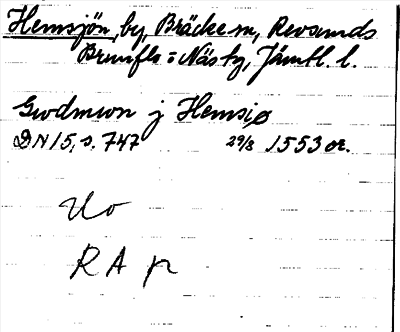 Hemsjön, by, Bräcke sn, Revsunds
Brunflo = Näsby, Jämtl. l.
Gudmwn j Hemsiø
DN 15, s. 747 29/8 1553 or.
Uo
RAp